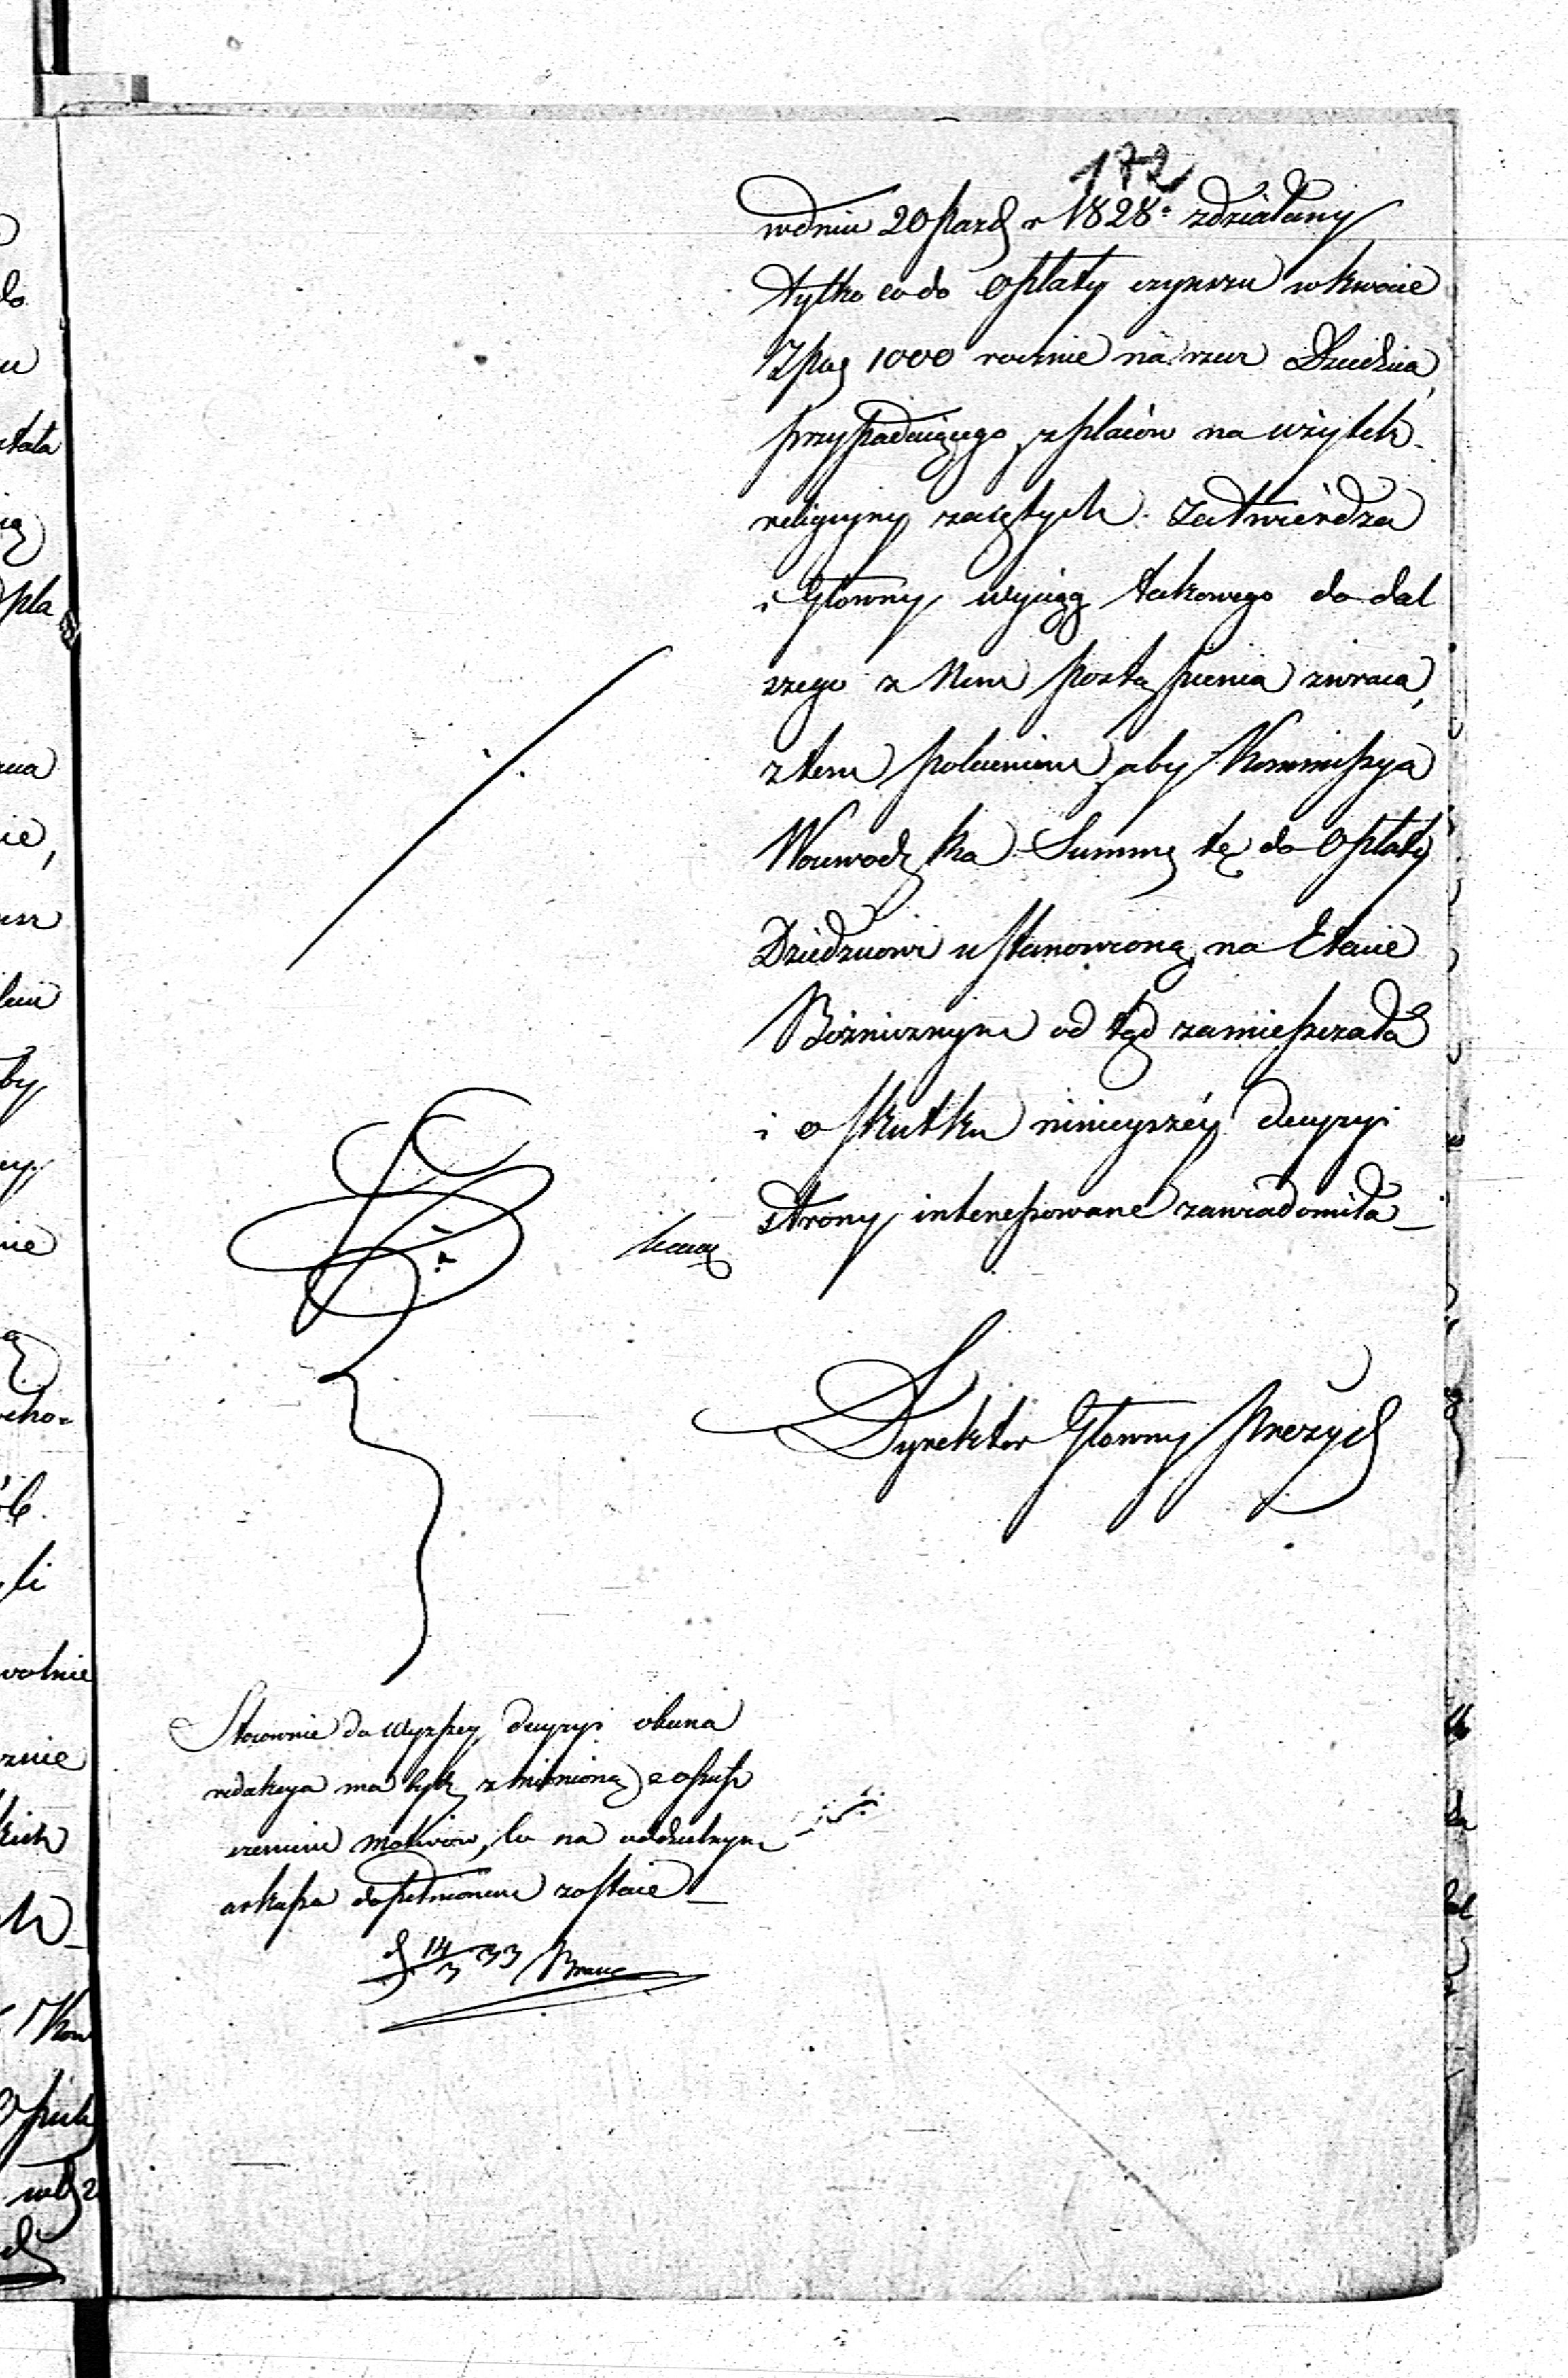 172
w dniu 20 Pazd. r 1828. zdziałany
tylko co do Opłaty czynszu w kwocie
Zpol 1000 rocznie na rzecz Dziedzica,
przypadaiącego z placów na użytek
religijny zaiętych. Zatwierdza
i Główny wyciąg takowego do dal
szego z Nim postąpienia zwraca,
z tem poleceniem, aby Kommissya
Woiewodzka Summę tę do Opłaty
Dziedzicowi ustanowioną na Etacie
Bożnicznym od tąd zamieszczała
i o skutku ninieyszéy decyzyi
strony interessowane zawiadomiła
Dyrektor Główny Prezyd
Stosownie do Wyższey decyzyi obecna
redakcya ma być zmienioną z opusz
czeniem motivów, co na oddzielnym
arkuszu dopełnionem zostaie
d 14/3 33